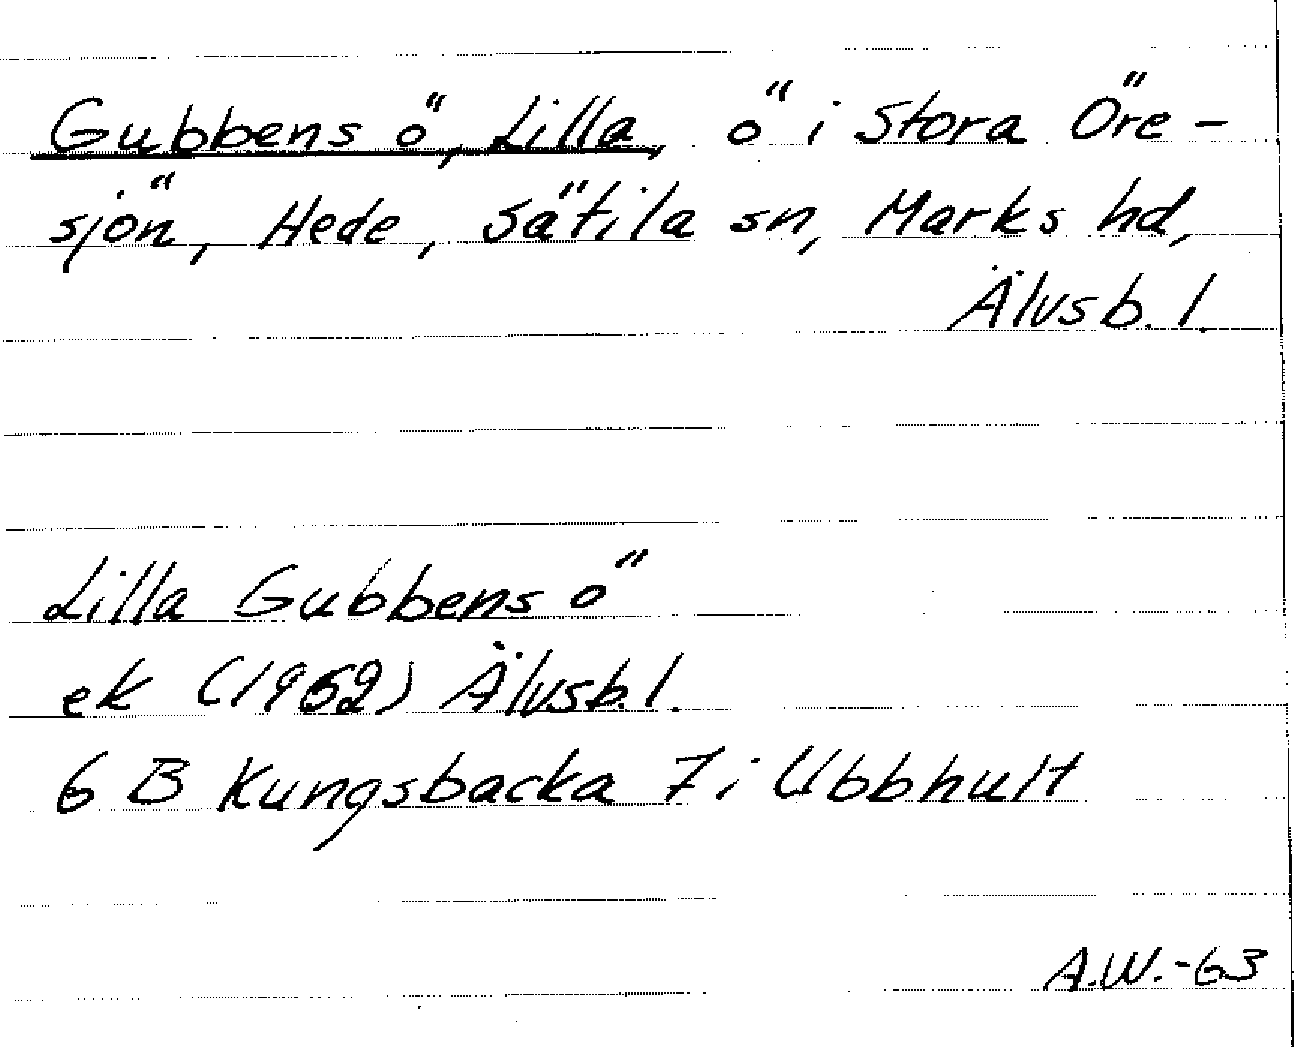 Gubbens ö, Lilla, ö i Stora Öre-
sjön, Hede, Sätila sn, Marks hd,
Älvsb. l.
Lilla Gubbens ö
ek (1962) Älvsb. l.
6 B Kungsbacka 7 i Ubbhult
A.W.-63